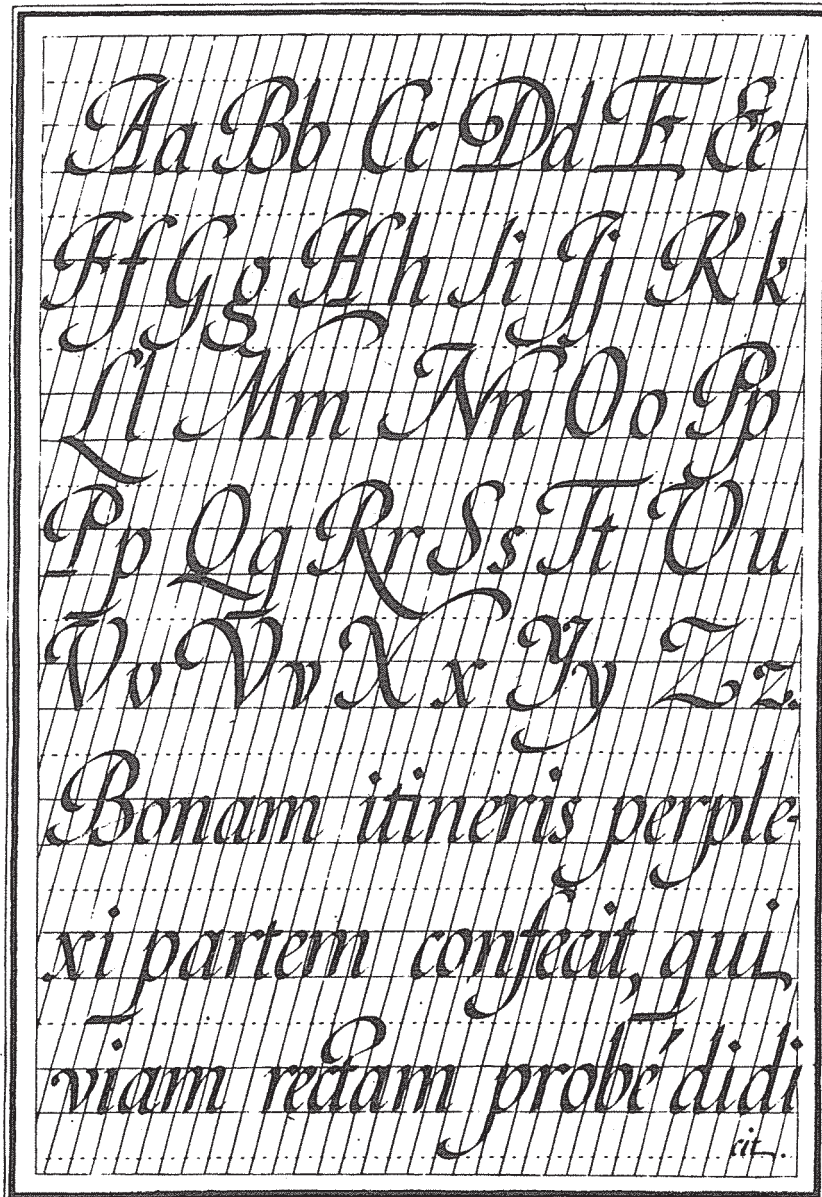 Aa Bb Cc Dd E Ee
Ff Gg Hh Ii Jj Kk
Ll Mm Nn Oo Pp
Pp Qq Rr Ss Tt Uu
Vv Vv Xx Yy Zz.
Bonam itineris perple-
xi partem confecit, qui
viam rectam probé didi
cit.